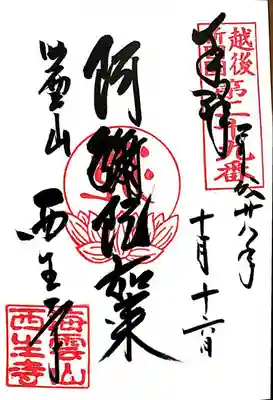 奉拝
越後第二十九番
平成廿八年
十月十六日
阿彌陀如来
海雲山
西生寺
海雲山
西生寺